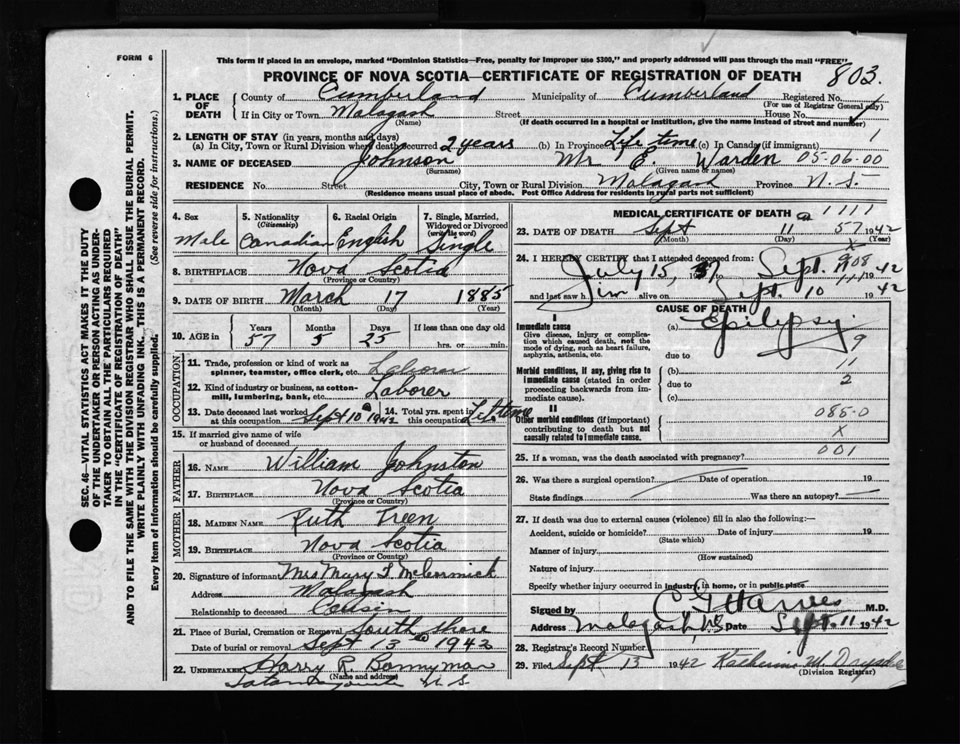 FORM 6
This form if placed in an envelope, marked "Dominion Statistics—Free, penalty for improper use $300," and properly addressed will pass through the mail "FREE".
PROVINCE OF NOVA SCOTIA—CERTIFICATE OF REGISTRATION OF DEATH 803
SEC. 46—VITAL STATISTICS ACT MAKES IT THE DUTY
OF THE UNDERTAKER OR PERSON ACTING AS UNDER-
TAKER TO OBTAIN ALL THE PARTICULARS REQUIRED
IN THE "CERTIFICATE OF REGISTRATION OF DEATH"
AND TO FILE THE SAME WITH THE DIVISION REGISTRAR WHO SHALL ISSUE THE BURIAL PERMIT.
WRITE PLAINLY WITH UNFADING INK. THIS IS A PERMANENT RECORD.
Every item of Information should be carefully supplied. (See reverse side for instructions.)
1. PLACE OF DEATH County of Cumberland Municipality of Cumberland Registered No.
(For use of Registrar General only)
If in City or Town Malagash Street House No.
(Name) (If death occurred in a hospital or institution, give the name instead of street and number)
2. LENGTH OF STAY (in years, months and days) 1
(a) In City, Town or Rural Division where death occurred 2 years (b) in Province Life time (c) In Canada (if immigrant)
3. NAME OF DECEASED Johnson Mr E. Warden 05-06-00
(Surname) (Given name or names)
RESIDENCE No. Street City, Town or Rural Division Malagash Province N.S.
(Residence means usual place of abode. Post Office Address for residents in rural parts not sufficient)
4. Sex Male
5. Nationality (Citizenship) Canadian
6. Racial Origin English
7. Single, Married, Widowed or Divorced (write the word) Single
8. BIRTHPLACE Nova Scotia
(Province or Country)
9. DATE OF BIRTH March 17 1885
(Month) (Day) (Year)
10. AGE in Years 57 Months 5 Days 25 If less than one day old
hrs. or min.
OCCUPATION
11. Trade, profession or kind of work as spinner, teamster, office clerk, etc. Laborer
12. Kind of industry or business, as cotton-mill, lumbering, bank, etc. Laborer
13. Date deceased last worked at this occupation Sept 10 1942 14. Total yrs. spent in this occupation Life time
15. If married give name of wife or husband of deceased
FATHER
16. NAME William Johnston
17. BIRTHPLACE Nova Scotia
(Province or Country)
MOTHER
18. MAIDEN NAME Ruth Treen
19. BIRTHPLACE Nova Scotia
(Province or Country)
20. Signature of informant Mrs Mary McCormick
Address Malagash
Relationship to deceased Cousin
21. Place of Burial, Cremation or Removal South Shore
Date of burial or removal Sept 13 1942
22. UNDERTAKER Harry R. Bonnyman
(Name and address)
N S
MEDICAL CERTIFICATE OF DEATH 1111
23. DATE OF DEATH Sept 11 57 1942
(Month) (Day) (Year)
24. I HEREBY CERTIFY that I attended deceased from:
July 15, Sept. 11 1942
and last saw h im alive on Sept. 10 1942
CAUSE OF DEATH
I
Immediate cause
Give disease, injury or complication which caused death, not the mode of dying, such as heart failure, asphyxia, asthenia, etc.
(a) Epilepsy.
9
due to
Morbid conditions, if any, giving rise to immediate cause (stated in order proceeding backwards from immediate cause).
(b) 11
due to 2
(c)
II
Other morbid conditions (if important) contributing to death but not causally related to immediate cause.
085-0
X
25. If a woman, was the death associated with pregnancy? 001
26. Was there a surgical operation? Date of operation 19
State findings Was there an autopsy?
27. If death was due to external causes (violence) fill in also the following:—
Accident, suicide or homicide? Date of injury 19
(State which)
Manner of injury
(How sustained)
Nature of injury
Specify whether injury occurred in Industry, in home, or in public place
Signed by M.D.
Address Malagash, N.S. Date Sept. 11 1942
28. Registrar's Record Number
29. Filed Sept 13 1942 Katherine M.
(Division Registrar)